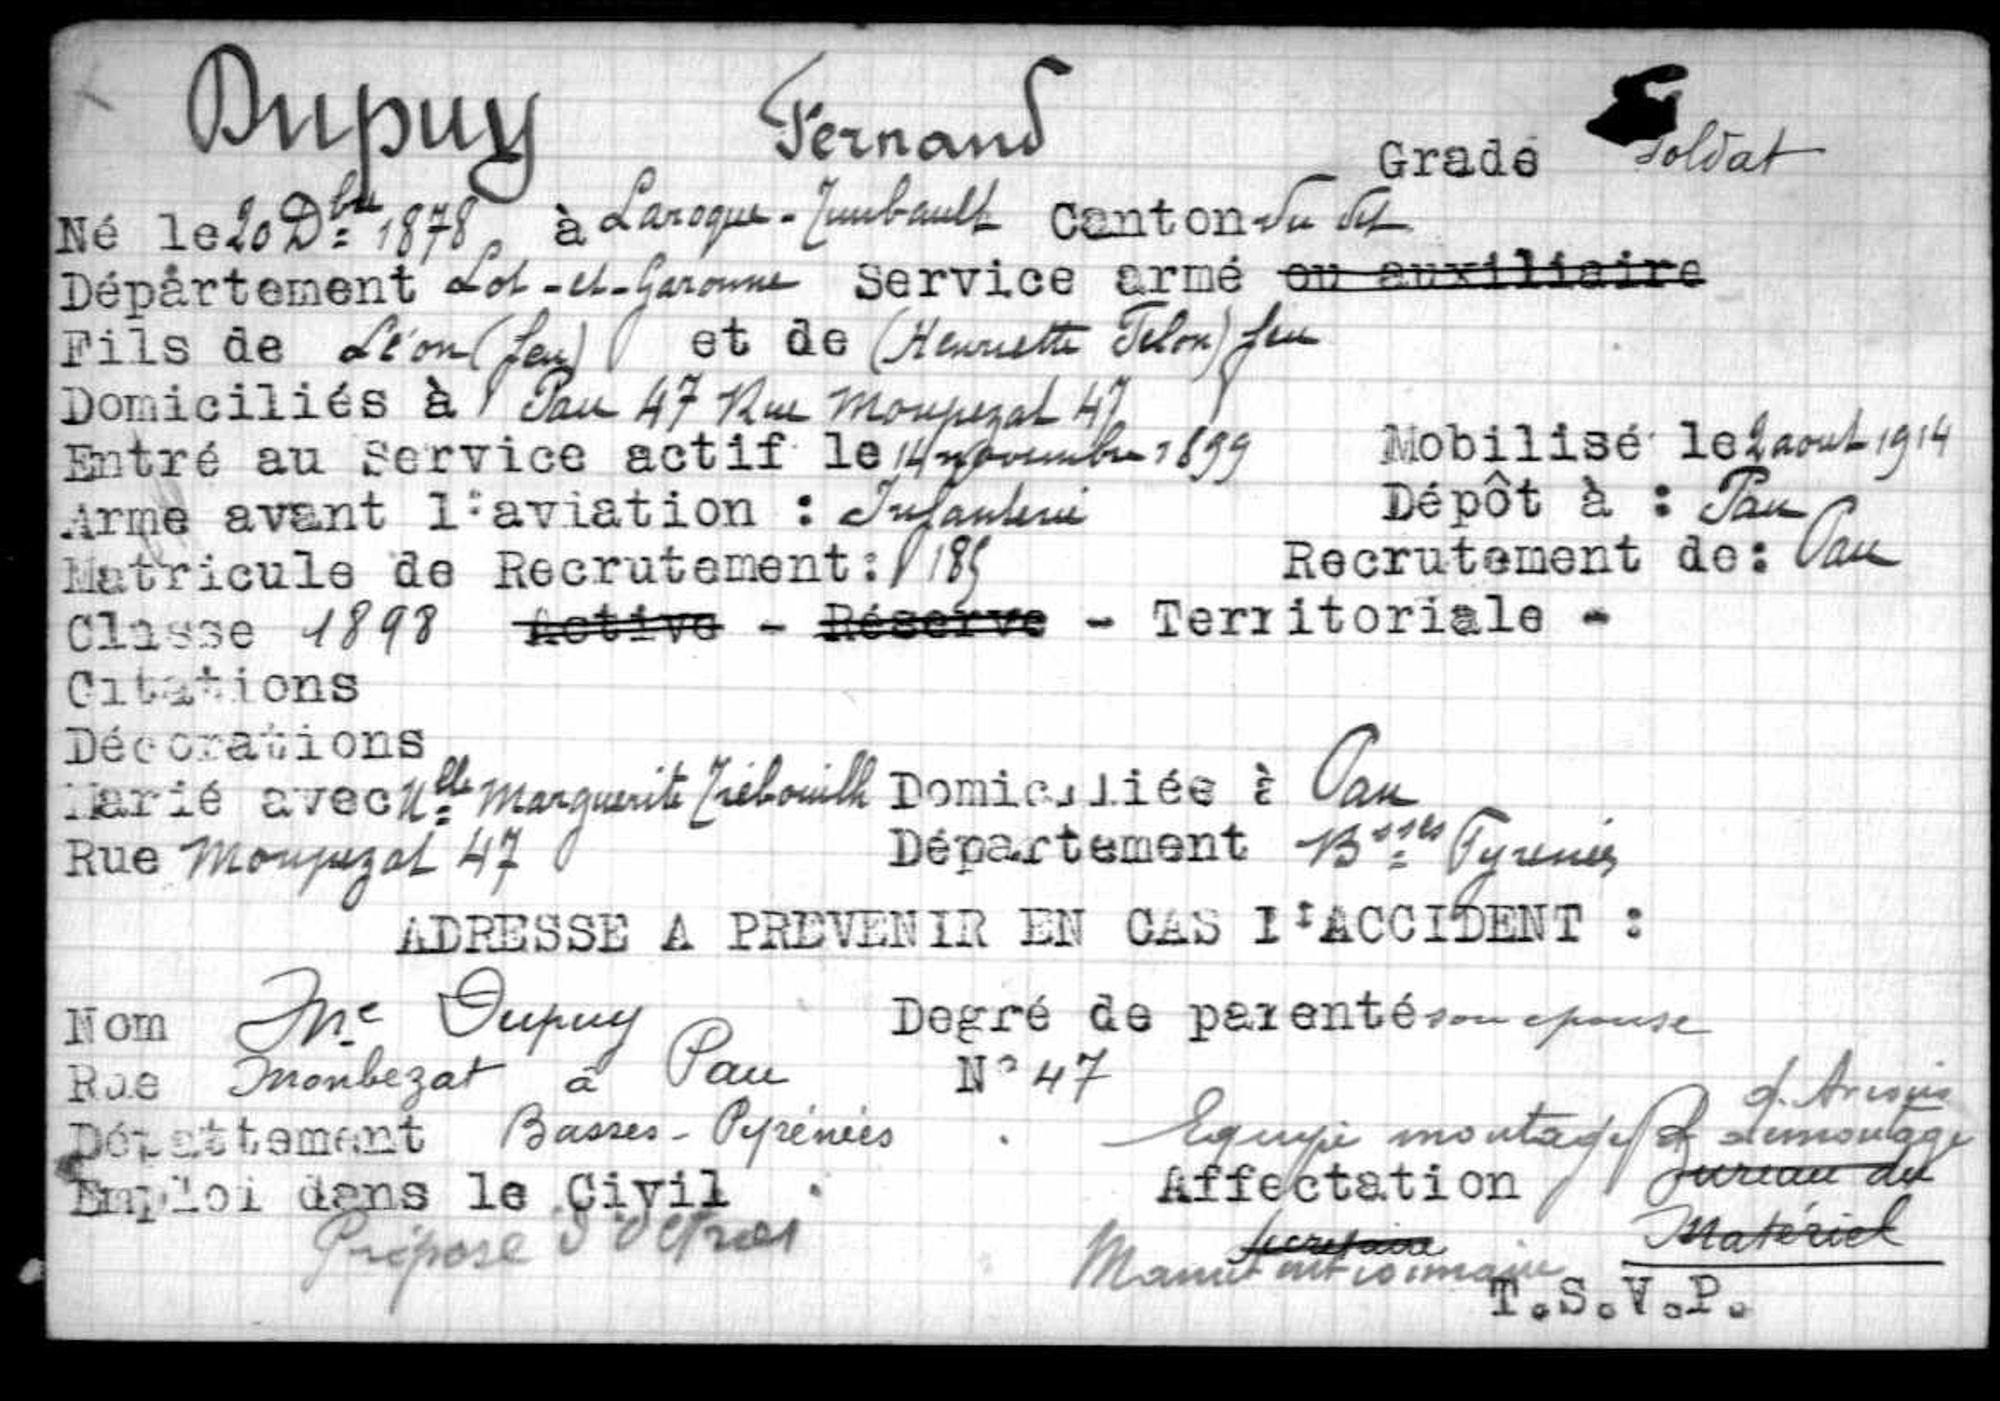 Dupuy Fernand Grade Soldat
Né le 20 Dbre 1878 à Laroque-Timbault Canton du dit
Département Lot-et-Garonne Service armé ou auxiliaire
Fils de Léon (feu) et de (Henriette Telon) feu
Domiciliés à Pau 47 Rue Monpezat 47
Entré au Service actif le 14 novembre 1899 Mobilisé le 2 aout 1914
Arme avant l'aviation : Infanterie Dépôt à : Pau
Matricule de Recrutement: 185 Recrutement de: Pau
Classe 1898 Active - Réserve - Territoriale -
Citations
Décorations
Marié avec Melle Marguerite Domiciliée à Pau
Rue Monpezat 47 Département Bsses Pyrenées
ADRESSE A PREVENIR EN CAS D'ACCIDENT :
Nom Me Dupuy Degré de parenté son epouse
Rue Monbezat à Pau N° 47
Départtement Basses-Pyrénées Equipe montage et demontage
Emploi dans le Civil Affectation Bureau du
Préposé d'octroi secretaire Matériel
T.S.V.P.